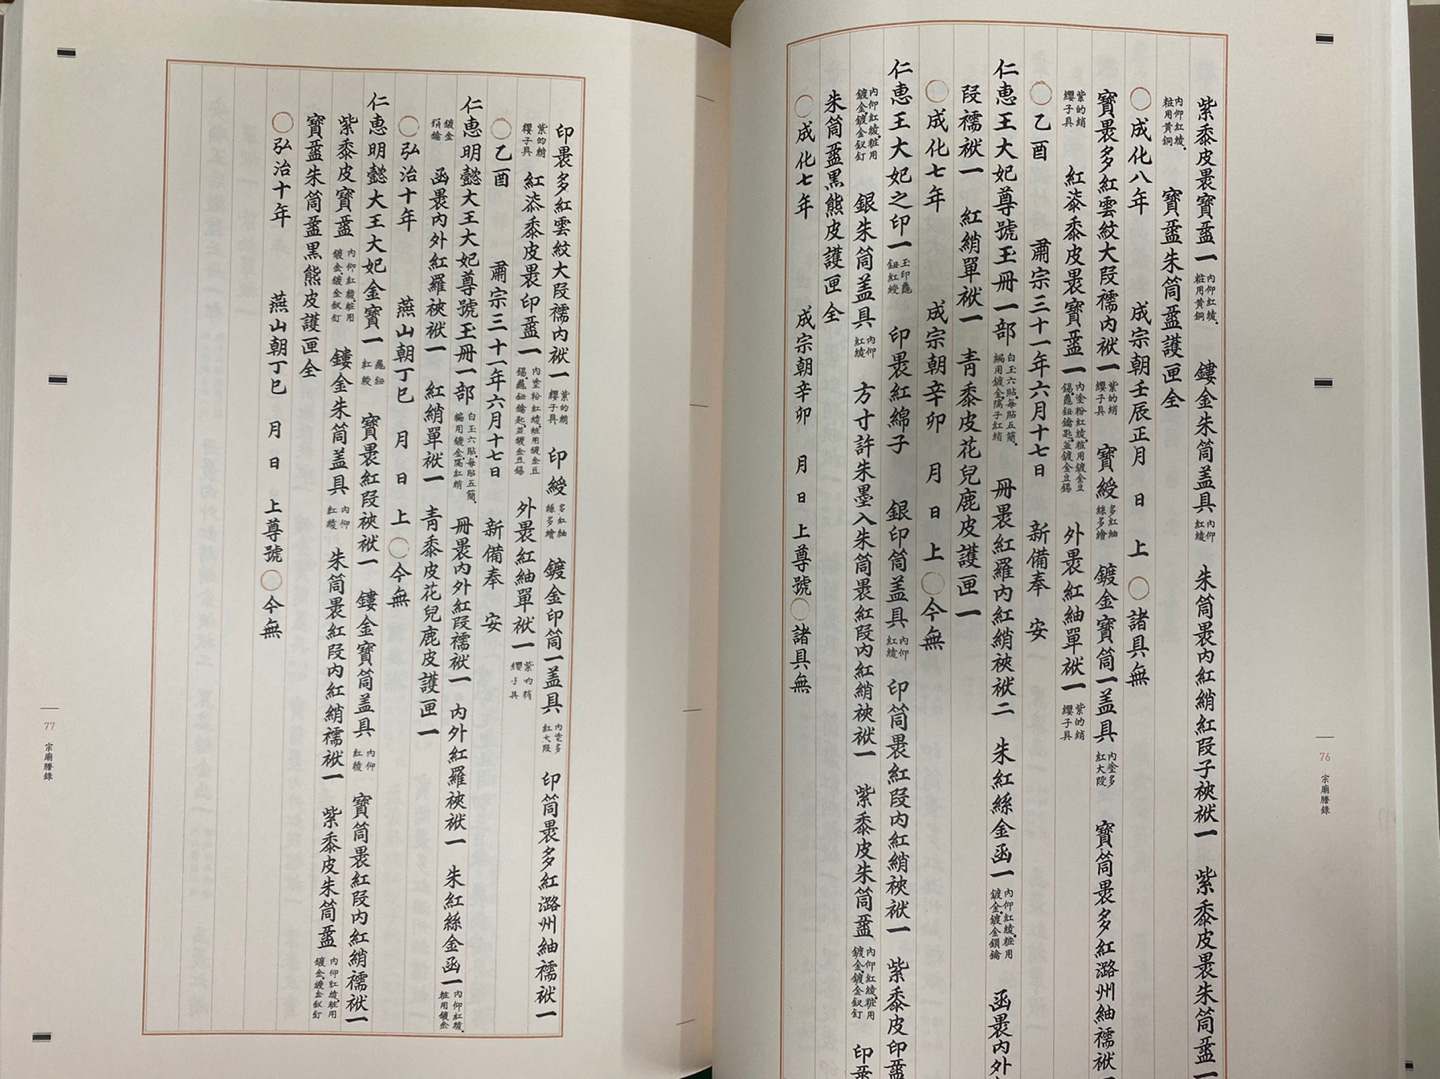 紫黍皮裹寶盝一 內仰紅綾 粧用黃銅 鏤金朱筒盖具 內仰紅綾 朱筒裹內紅綃紅段子袂袱一 紫黍皮裹朱筒盝一
內仰紅綾 粧用黃銅 寶盝朱筒盝護匣全
〇成化八年 成宗朝壬辰正月 日 上〇諸具無
寶裹多紅雲紋大段襦內袱一 紫的綃纓子具 寶綬 多紅紬絲多繪 鍍金寶筒一盖具 內塗多紅大段 寶筒裹多紅潞州紬襦袱
紫的綃纓子具 紅漆黍皮裹寶盝一 內塗粉紅綾 粧用鍍金豆錫 龜鈕鑰匙並鍍金豆錫 外裹紅紬單袱一 紫的綃纓子具
〇乙酉 肅宗三十一年六月十七日 新備奉 安
仁惠王大妃尊號玉冊一部 白玉六貼每貼五簡 編用鍍金隔子紅綃 冊裹紅羅內紅綃袂袱二 朱紅絲金函一 內仰紅綾 粧用鍍金 鍍金鎖鑰 函裹內外
段襦袱一 紅綃單袱一 青黍皮花兒鹿皮護匣一
〇成化七年 成宗朝辛卯 月 日 上〇今無
仁惠王大妃之印一 玉印龜鈕紅綬 印裹紅綿子 銀印筒盖具 內仰紅綾 印筒裹紅段內紅綃袂袱一 紫黍皮印盝
內仰紅綾 粧用鍍金 鍍金釵釘 銀朱筒盖具 內仰紅綾 方寸許朱墨入朱筒裹紅段內紅綃袂袱一 紫黍皮朱筒盝 內仰紅綾 粧用鍍金 鍍金釵釘 印
朱筒盝黑熊皮護匣全
〇成化七年 成宗朝辛卯 月 日 上尊號〇諸具無
76 宗廟謄錄
印裹多紅雲紋大段襦內袱一 紫的綃纓子具 印綬 多紅紬絲多繪 鍍金印筒一盖具 內塗多紅大段 印筒裹多紅潞州紬襦袱一
紫的綃纓子具 紅漆黍皮裹印盝一 內塗粉紅綾 粧用鍍金豆錫 龜鈕鑰匙並鍍金豆錫 外裹紅紬單袱一 紫的綃纓子具
〇乙酉 肅宗三十一年六月十七日 新備奉 安
仁惠明懿大王大妃尊號玉冊一部 白玉六貼每貼五簡 編用鍍金隔紅綃 冊裹內外紅段襦袱一 內外紅羅袂袱一 朱紅絲金函一 內仰紅綾 粧用鍍金
鍍金鎖鑰 函裹內外紅羅袂袱一 紅綃單袱一 青黍皮花兒鹿皮護匣一
〇弘治十年 燕山朝丁巳 月 日 上〇今無
仁惠明懿大王大妃金寶一 龜鈕紅綬 寶裹紅段袂袱一 鏤金寶筒盖具 內仰紅綾 寶筒裹紅段內紅綃襦袱一
紫黍皮寶盝 內仰紅綾 粧用鍍金 鍍金釵釘 鏤金朱筒盖具 內仰紅綾 朱筒裹紅段內紅綃襦袱一 紫黍皮朱筒盝 內仰紅綾 粧用鍍金 鍍金釵釘
寶盝朱筒盝黑熊皮護匣全
〇弘治十年 燕山朝丁巳 月 日 上尊號〇今無
77 宗廟謄錄